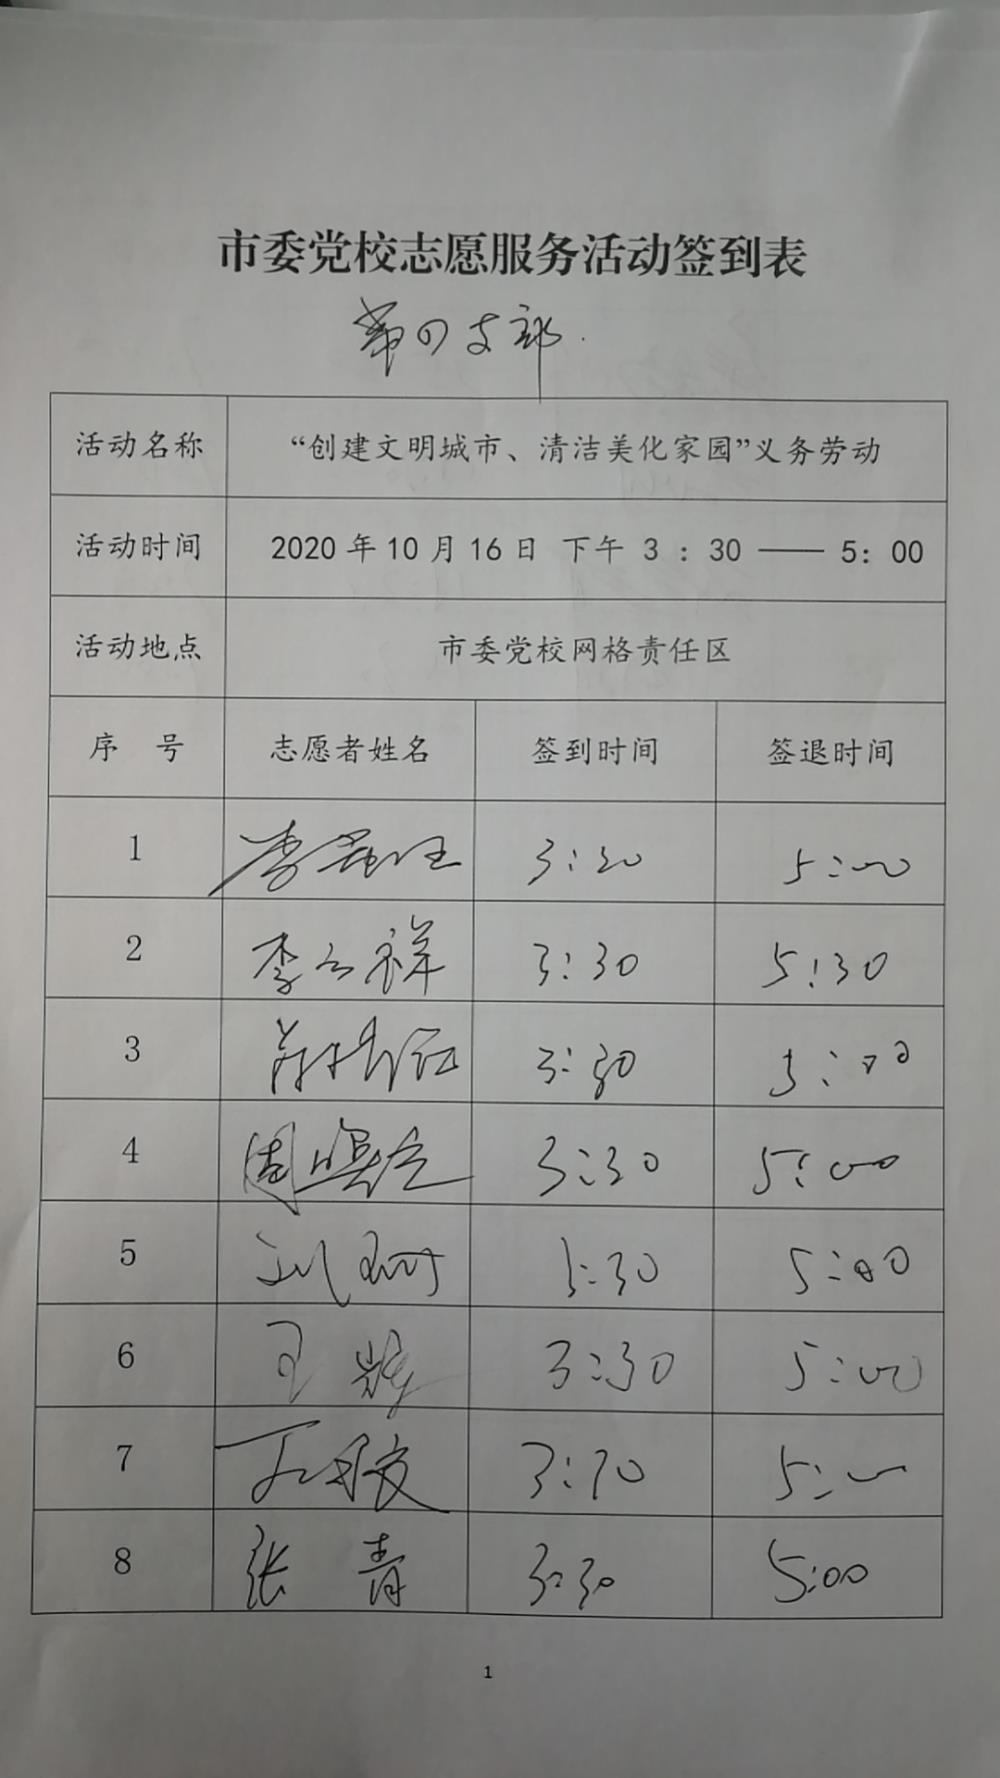 市委党校志愿服务活动签到表
第四支部
活动名称 “创建文明城市、清洁美化家园”义务劳动
活动时间 2020 年 10 月 16 日 下午 3 : 30 —— 5: 00
活动地点 市委党校网格责任区
序 号 志愿者姓名 签到时间 签退时间
1 李 3:30 5:00
2 李云祥 3:30 5:30
3 3:30 5:00
4 周 3:30 5:00
5 刘 3:30 5:00
6 王 3:30 5:00
7 3:30 5:00
8 张青 3:30 5:00
1